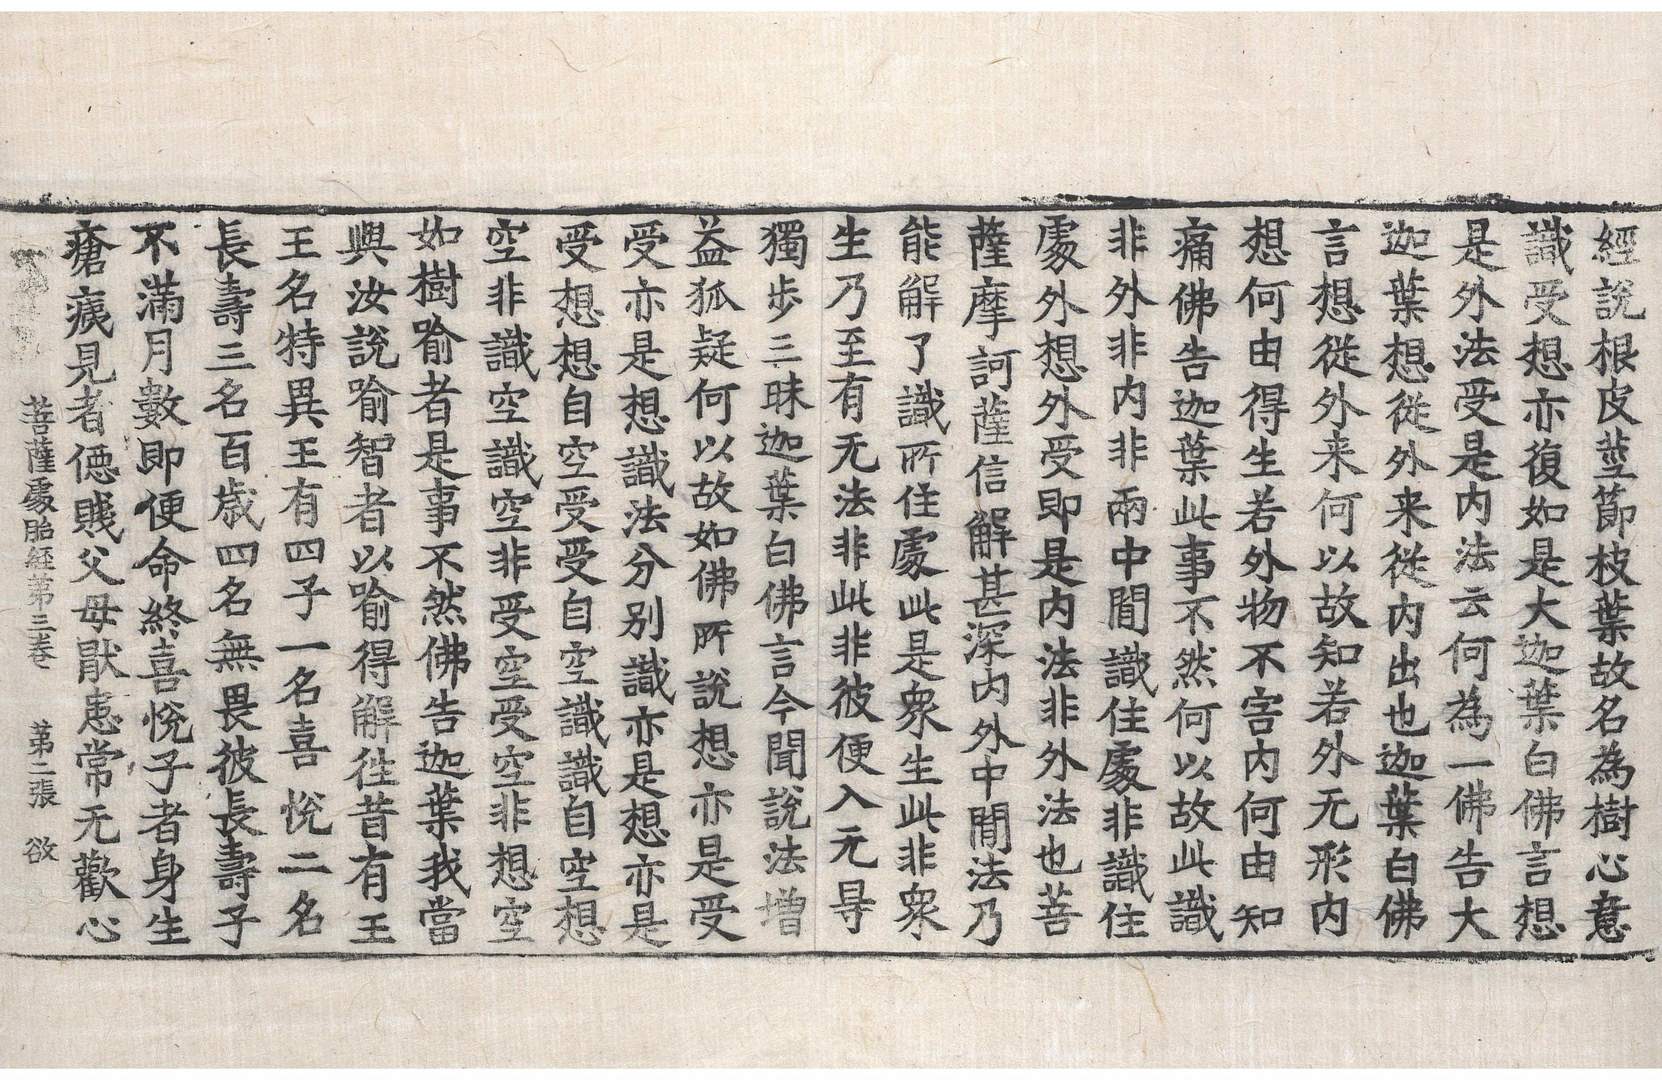 經說根皮莖節枝葉故名為樹心意
識受想亦復如是大迦葉白佛言想
是外法受是内法云何為一佛告大
迦葉想從外来從内出也迦葉白佛
言想從外来何以故知若外无形内
想何由得生若外物不害内何由知
痛佛告迦葉此事不然何以故此識
非外非内非兩中間識住處非識住
處外想外受即是内法非外法也菩
薩摩訶薩信解甚深内外中間法乃
能解了識所住處此是衆生此非衆
生乃至有无法非此非彼便入无㝵
獨步三昧迦葉白佛言今聞說法增
益狐疑何以故如佛所說想亦是受
受亦是想識法分别識亦是想亦是
受想想自空受受自空識識自空想
空非識空識空非受空受空非想空
如樹喻者是事不然佛告迦葉我當
與汝說喻智者以喻得解往昔有王
王名特異王有四子一名喜悅二名
長壽三名百歳四名無畏彼長壽子
不滿月數即便命終喜悅子者身生
瘡痍見者僫賤父母猒恚常无歡心
菩薩處胎經第三卷 第二張 欲